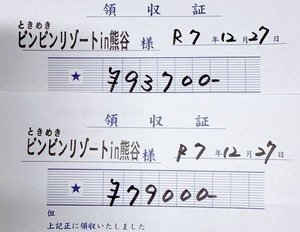 領収証
ときめき
ピンピンリゾートin熊谷 様 R7年12月27日
★ ¥93700-
領収証
ときめき
ピンピンリゾートin熊谷 様 R7年12月27日
★ ¥79000-
但
上記正に領収いたしました